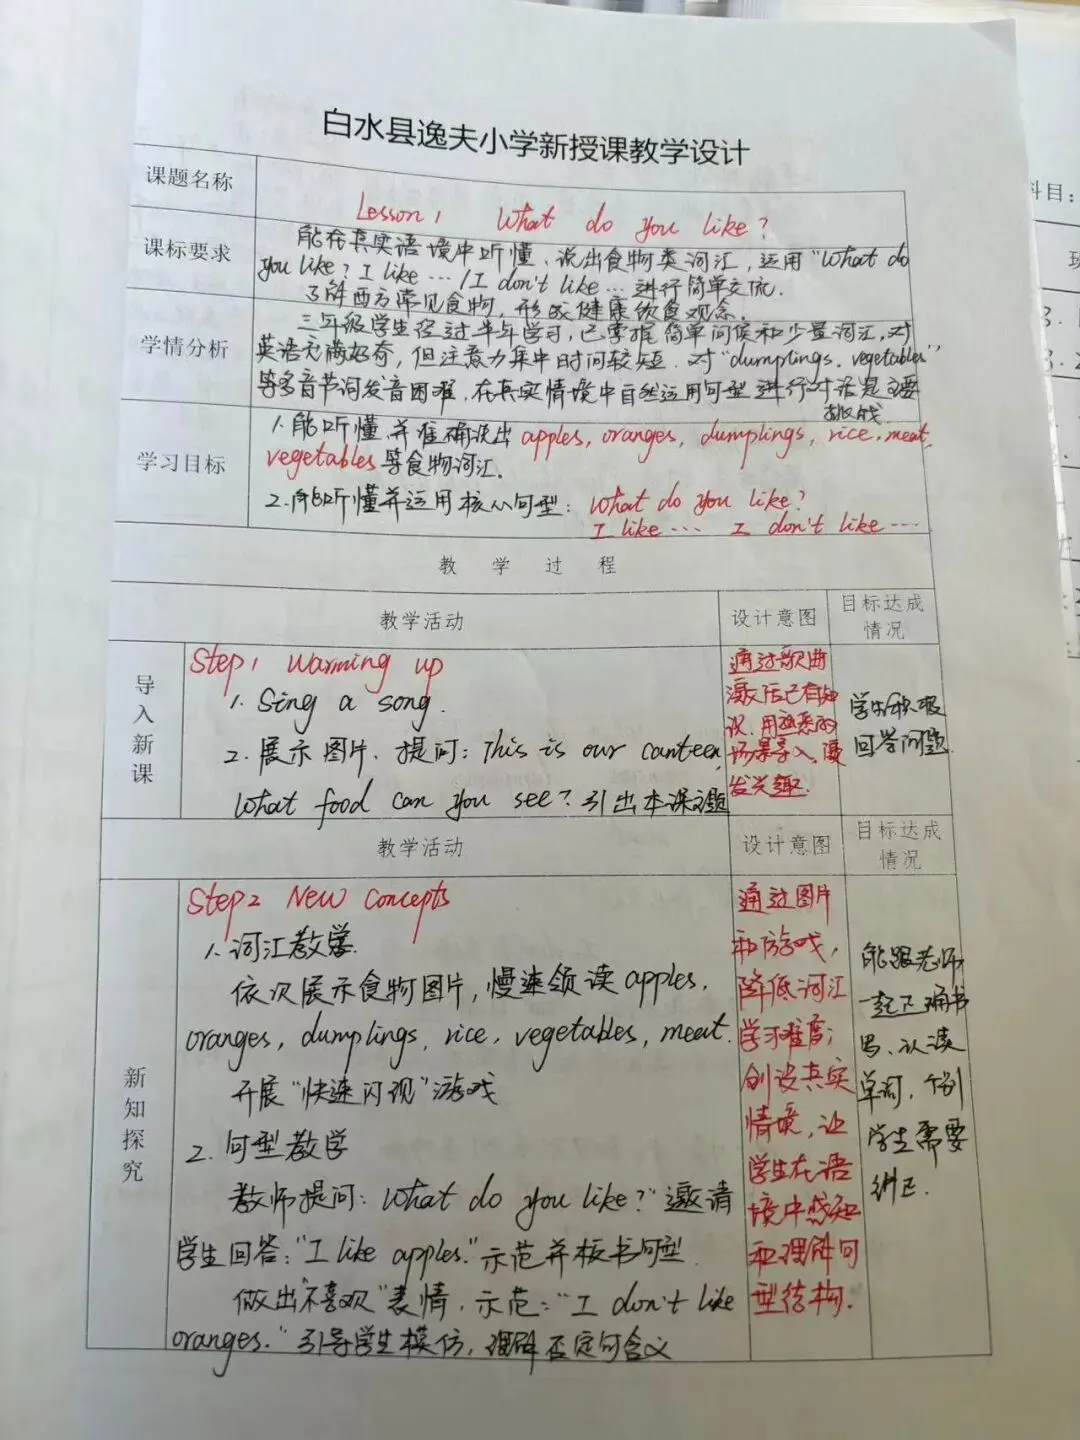 白水县逸夫小学新授课教学设计
课题名称
Lesson 1 What do you like?
课标要求
能在真实语境中听懂、说出食物类词汇，运用"What do
you like? I like… / I don't like…进行简单交流.
了解西方常见食物，形成健康饮食观念.
学情分析
三年级学生经过半年学习，已掌握简单问候和少量词汇，对
英语充满好奇，但注意力集中时间较短. 对"dumplings、vegetables"
等多音节词发音困难，在真实情境中自然运用句型进行对话是主要
挑战
学习目标
1.能听懂并准确说出apples, oranges, dumplings, rice, meat,
vegetables等食物词汇.
2.能听懂并运用核心句型: What do you like?
I like… I don't like…
教 学 过 程
教学活动
设计意图
目标达成
情况
导入新课
Step1 Warming up
1. Sing a song.
2. 展示图片，提问: This is our canteen,
What food can you see? 引出本课主题
通过歌曲
激活已有知
识，用熟悉的
场景导入，激
发兴趣.
学生积极
回答问题
教学活动
设计意图
目标达成
情况
新知探究
Step2 New Concepts
1.词汇教学
依次展示食物图片，慢速领读apples,
oranges, dumplings, rice, vegetables, meat.
开展"快速闪现"游戏
2. 句型教学
教师提问: What do you like?"邀请
学生回答: "I like apples."示范并板书句型.
做出"不喜欢"表情，示范: "I don't like
oranges."引导学生模仿，理解否定句含义
通过图片
和游戏，
降低词汇
学习难度;
创设真实
情境，让
学生在语
境中感知
和理解句
型结构.
能跟老师
一起正确书
写、认读
单词，个别
学生需要
纠正.
科目: